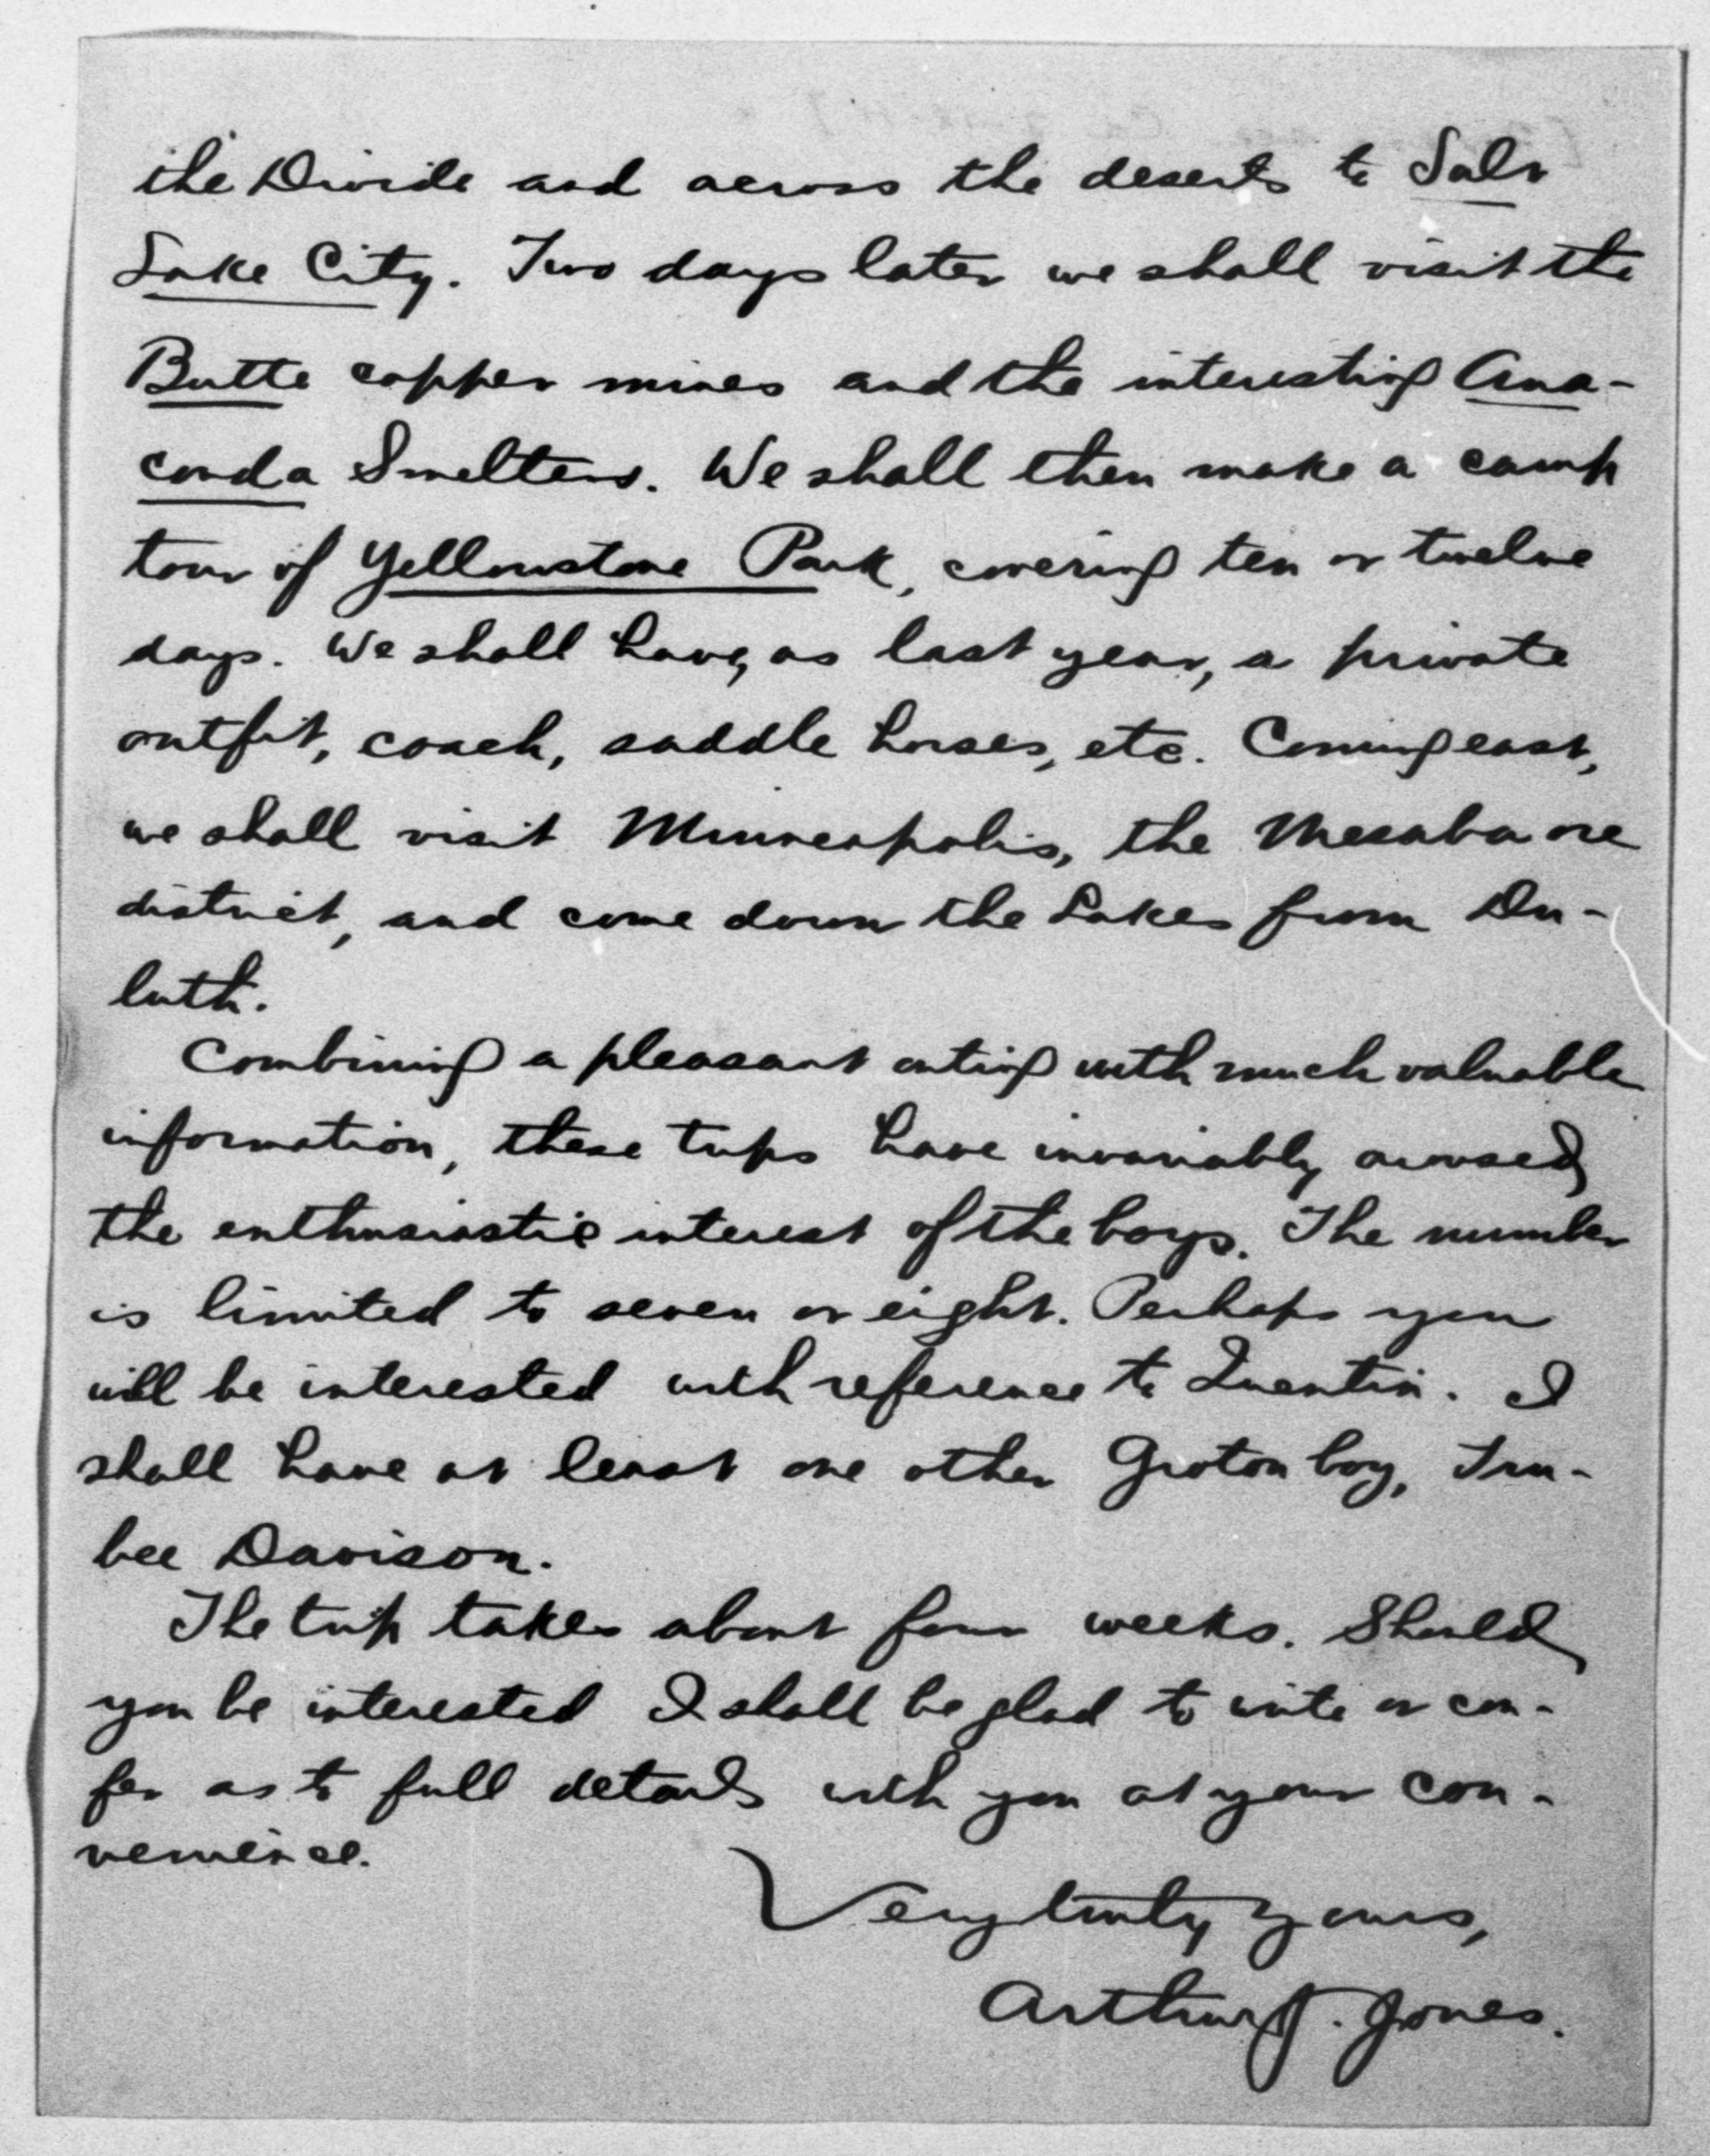 the Divide and across the deserts to Salt
Lake City. Two days later we shall visit the
Butte copper mines and the interesting Ana-
conda Smelters. We shall then make a camp
tour of Yellowstone Park, covering ten or twelve
days. We shall have, as last year, a private
outfit, coach, saddle horses, etc. Coming east,
we shall visit Minneapolis, the Mesaba ore
district, and come down the Lakes from Du-
luth.
Combining a pleasant outing with much valuable
information, these trips have invariably aroused
the enthusiastic interest of the boys. The number
is limited to seven or eight. Perhaps you
will be interested with reference to Quentin. I
shall have at least one other Groton boy, Tru-
bee Davison.
The trip takes about four weeks. Should
you be interested I shall be glad to write or con-
fer as to full details with you at your con-
venience.
Very truly yours,
Arthur J. Jones.